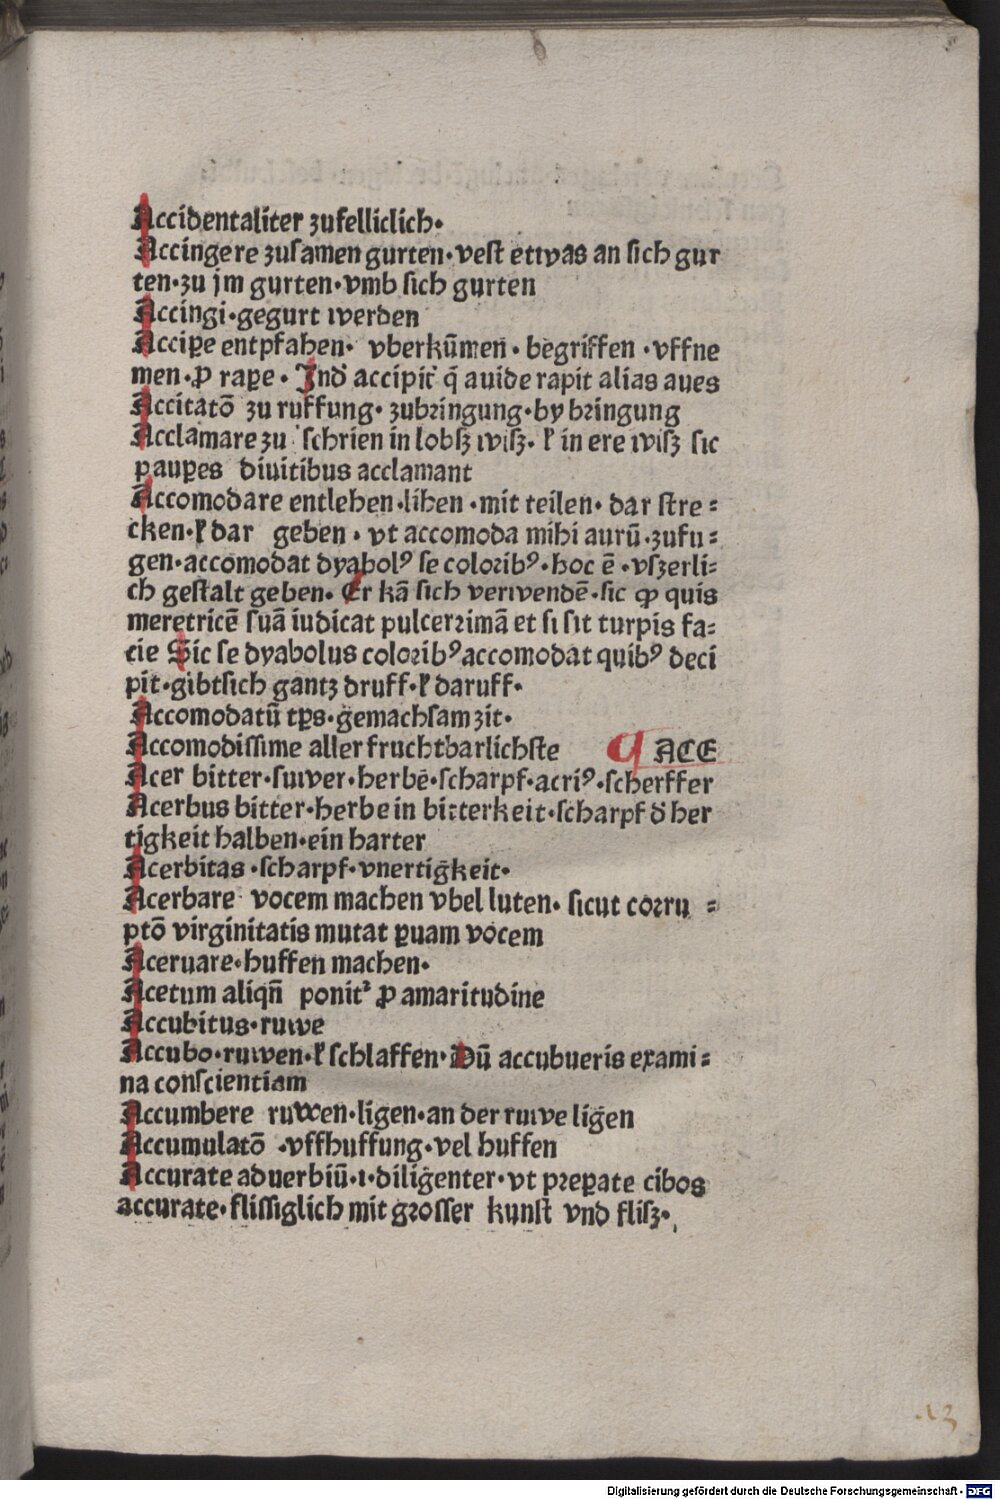 Accidentaliter zufelliclich·
Accingere zusamen gurten·vest etwas an sich gur
ten·zu jm gurten·vmb sich gurten
Accingi·gegurt werden
Acciꝑe entpfahen· vberkūmen·begriffen·vffne
men·ꝓ raꝑe·Ind̄ accipit̉ q̄ auide rapit alias aues
Accitatō zu ruffung·zubringung·by bringung
Acclamare zu schrien in lobsz wisz·ꝉ in ere wisz sic
pauꝑes diuitibus acclamant
Accomodare entlehen·lihen·mit teilen·dar stre⸗
cken·ꝉ dar geben·vt accomoda mihi aurū·zufu⸗
gen·accomodat dyabolꝰ se coloribꝰ·hoc ē·vszerli⸗
ch gestalt geben·Er kā sich verwendē·sic ꝙ quis
meretricē suā iudicat pulcerrimā et si sit turpis fa⸗
cie Sic se dyabolus coloribꝰ accomodat quibꝰ deci
pit·gibtsich gantz druff·ꝉ daruff·
Accomodatū tꝑs·gemachsam zit·
Accomodissime aller fruchtbarlichste ¶ ACE
Acer bitter·suwer·herbē·scharpf·acriꝰ·scherffer
Acerbus bitter·herbe in bitterkeit·scharpf d̄ her
tigkeit halben·ein harter
Acerbitas·scharpf·vnertigkeit·
Acerbare vocem machen vbel luten·sicut corru⸗
ptō virginitatis mutat ꝑuam vocem
Aceruare·huffen machen·
Acetum aliqn̄ ponit᷒ ꝓ amaritudine
Accubitus·ruwe
Accubo·ruwen·ꝉ schlaffen·Dū accubueris exami⸗
na conscientiam
Accumbere ruwen·ligen·an der ruwe ligen
Accumulatō·vffhuffung·vel huffen
Accurate aduerbiū·i·diligenter·vt preꝑate cibos
accurate·flissiglich mit grosser kunst vnd flisz·
·13
Digitalisierung gefördert durch die Deutsche Forschungsgemeinschaft - DFG